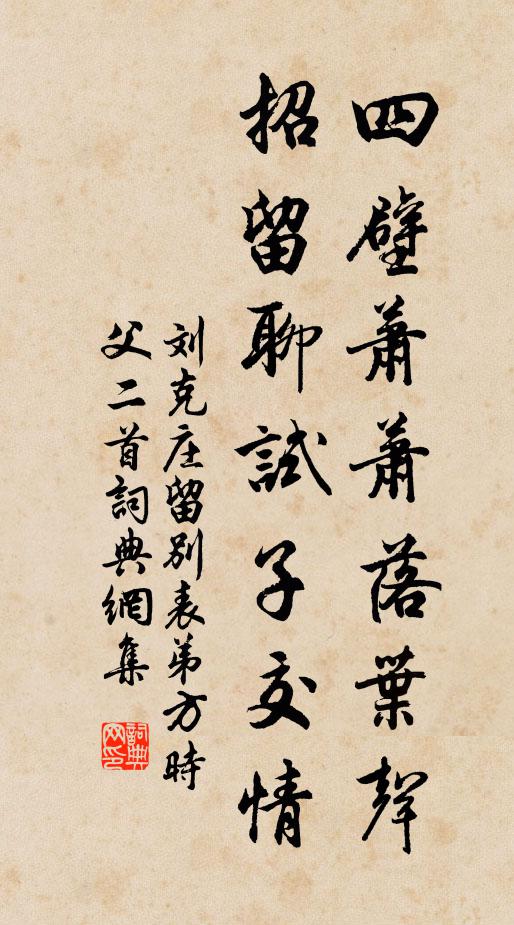 四壁蕭蕭落葉聲
招留聊試子交情
刘克庄留別表弟方時
父二首詞典網集
詞典
网印